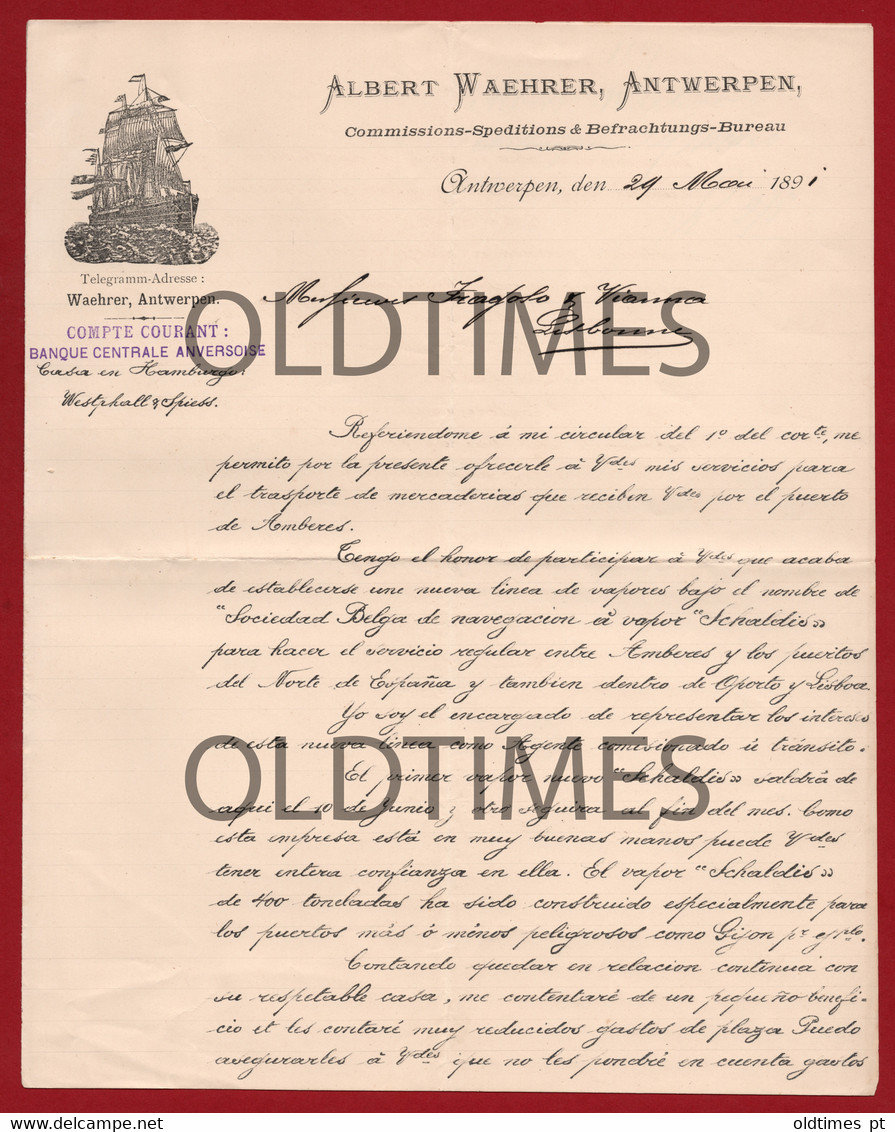 ALBERT WAEHRER, ANTWERPEN,
Commissions-Speditions & Befrachtungs-Bureau
Antwerpen, den 29 Mai 1891
Telegramm-Adresse:
Waehrer, Antwerpen.
COMPTE COURANT:
BANQUE CENTRALE ANVERSOISE
Casa en Hamburgo:
Westphall & Spiess.
Messieurs Fragoso & Vianna
Lisbonne
OLDTIMES
Referiendome á mi circular del 1º del corte, me
permito por la presente ofrecerle á Vdes mis servicios para
el trasporte de mercaderias que reciben Vdes por el puerto
de Amberes.
Tengo el honor de participar á Vdes que acaba
de establecerse une nueva linea de vapores bajo el nombre de
"Sociedad Belga de navegacion á vapor "Schaldis»
para hacer el servicio regular entre Amberes y los puertos
del Norte de España y tambien dentro de Oporto y Lisboa.
Yo soy el encargado de representar los intereses
de esta nueva linea como Agente comisionado ú tránsito.
OLDTIMES
El primer vapor nuevo "Schaldis» saldrá de
aqui el 10 de Junio y otro seguira al fin del mes. Como
esta empresa está en muy buenas manos puede Vdes
tener entera confianza en ella. El vapor "Schaldis»
de 400 toneladas ha sido construido especialmente para
los puertos más ó ménos peligrosos como Gijon pr ejplo.
Contando quedar en relacion continuá con
su respetable casa, me contentaré de un pequeño benefi-
cio et les contaré muy reducidos gastos de plaza Puedo
asegurarles á Vdes que no les pondré en cuenta gastos
oldtimes pt